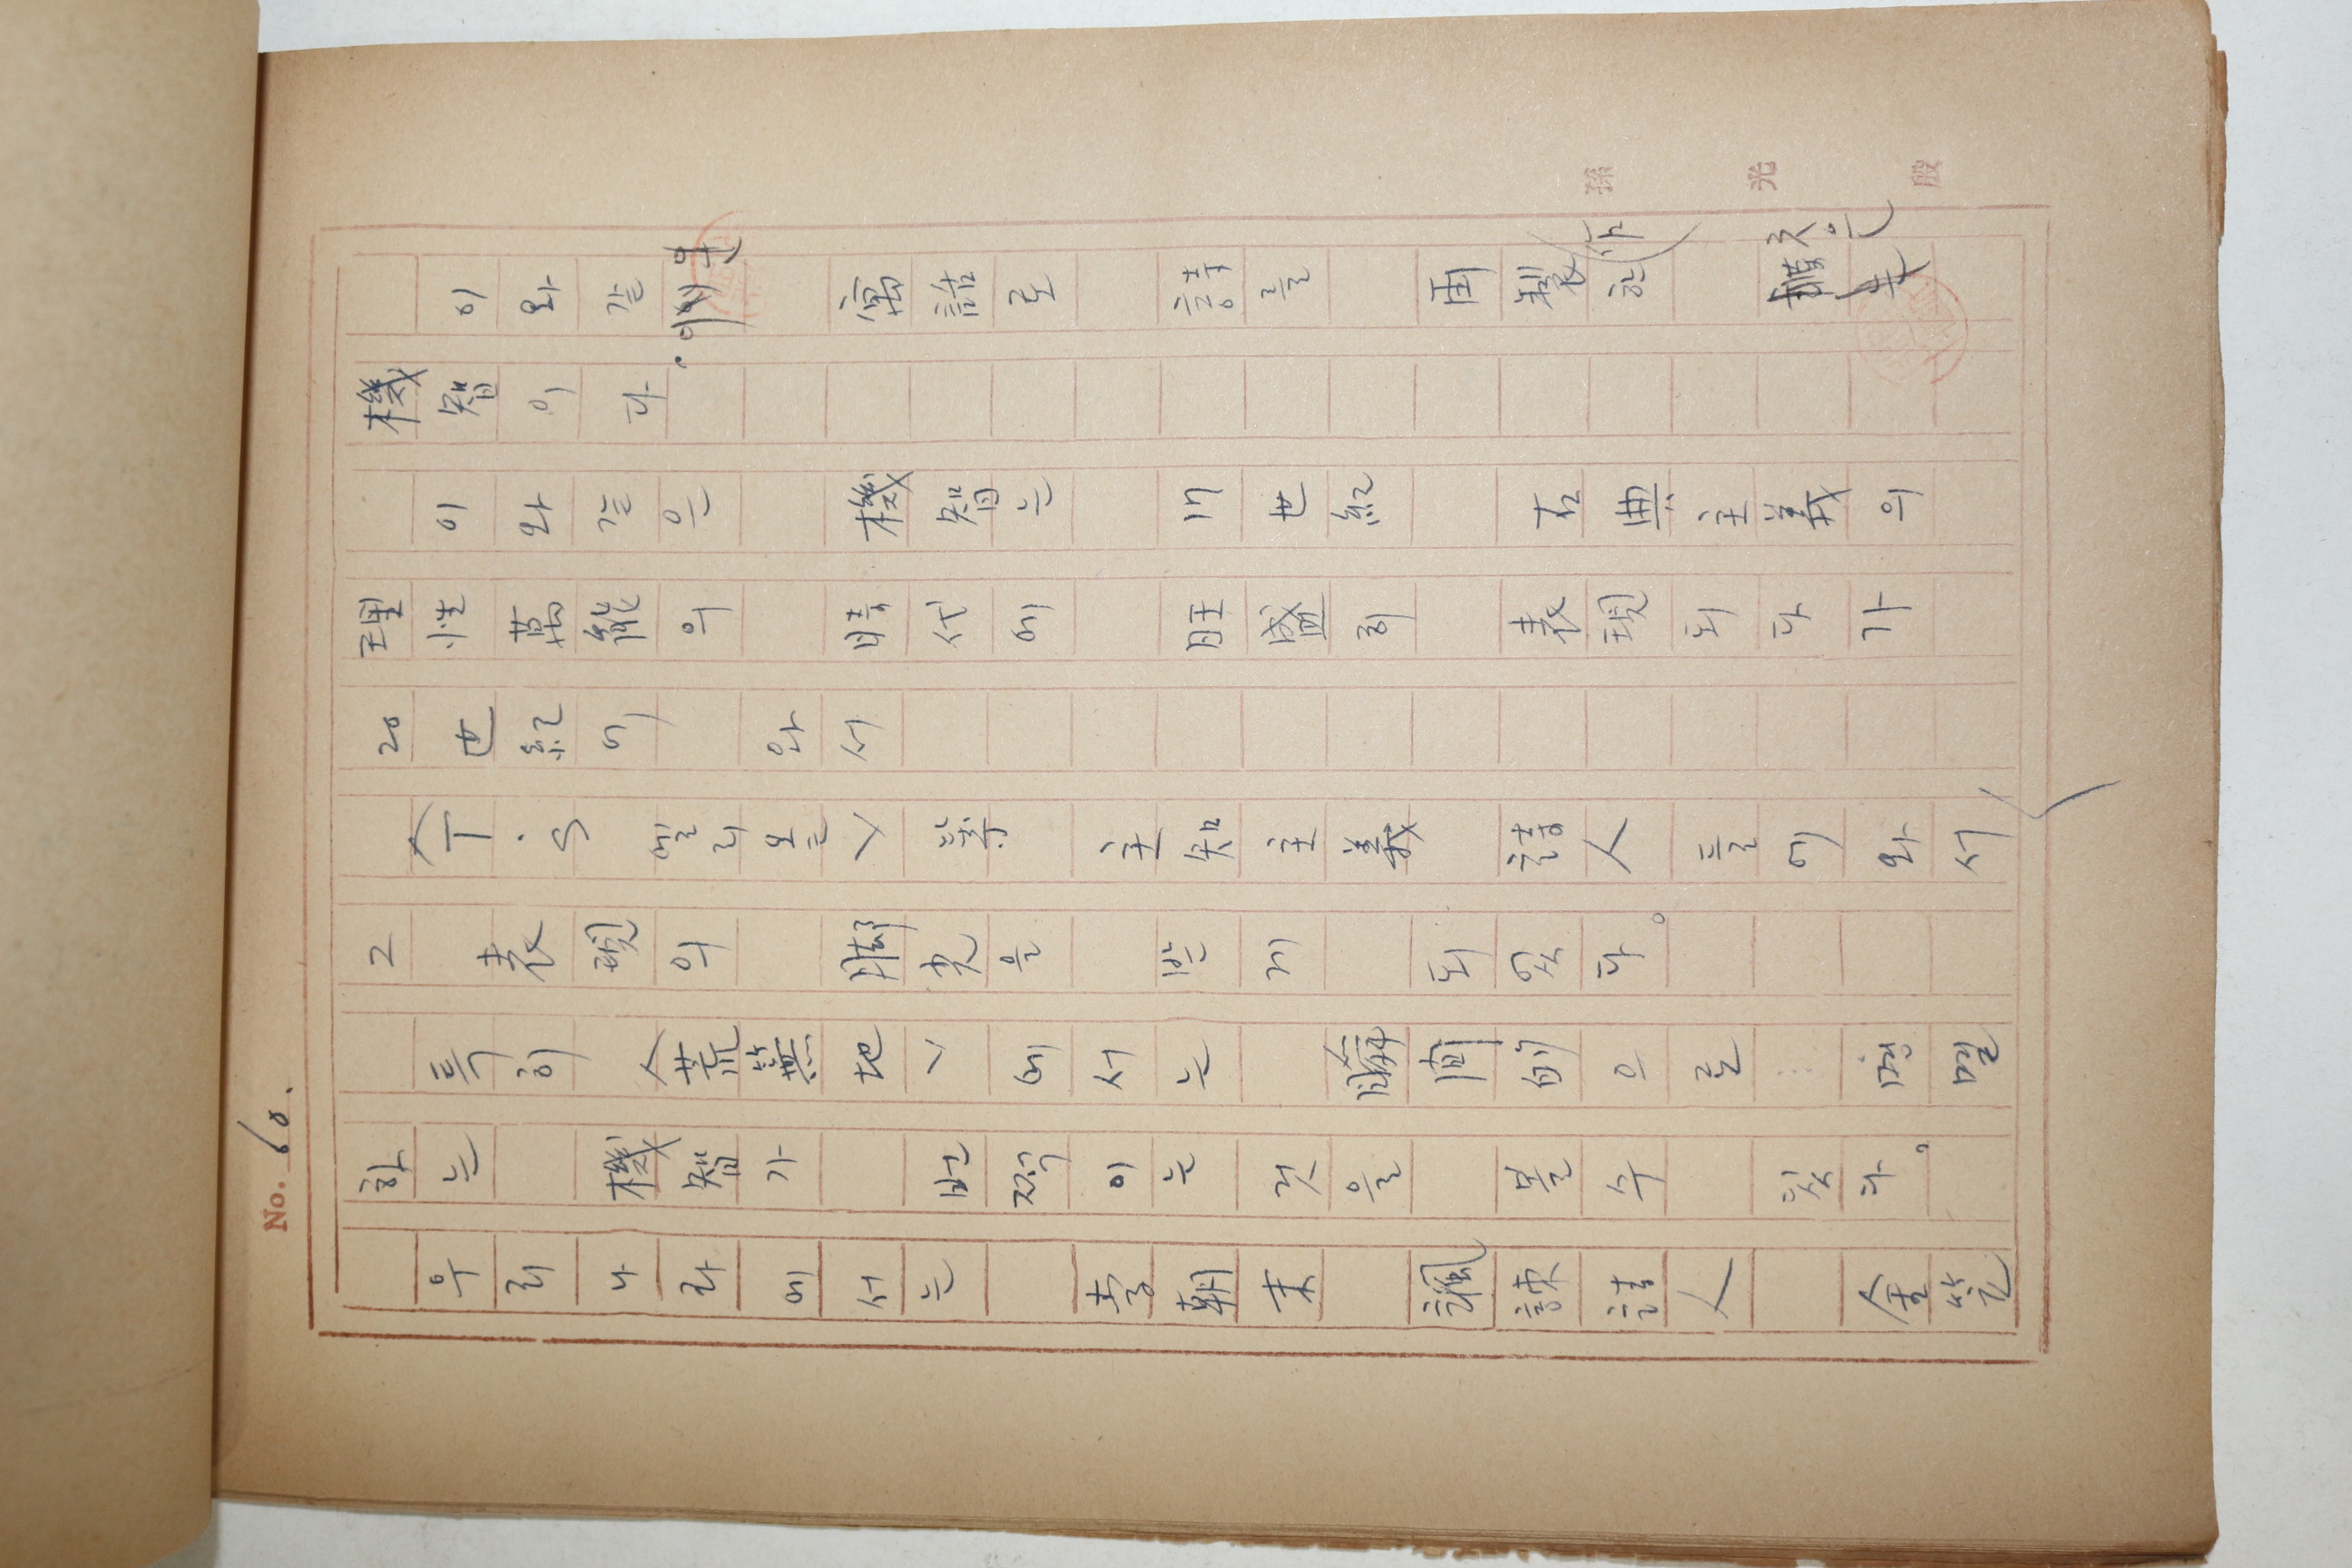 No. 60.
孫光殷
이와 같은 寓話로 詩를 再製作한 것은
機智이다.
이와 같은 機智는 17世紀 古典主義의
理性萬能의 時代에 旺盛히 表現되다가
20世紀에 와서
〈T·S 엘리오트〉 等 主知主義 詩人들에 와서
그 表現의 脚光을 받게 되었다.
특히 〈荒蕪地〉에서는 瞬間的으로…명멸
하는 機智가 번쩍이는 것을 볼 수 있다.
우리나라에서는 李朝末 諷諫詩人 金笠